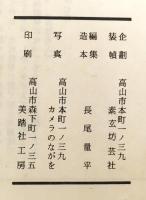 企劃 高山市本町一ノ三九
装幀 素玄坊芸社
編集
造本 長尾量平
写真 高山市本町一ノ三九
カメラのながを
印刷 高山市森下町一ノ三五
美踏社工房